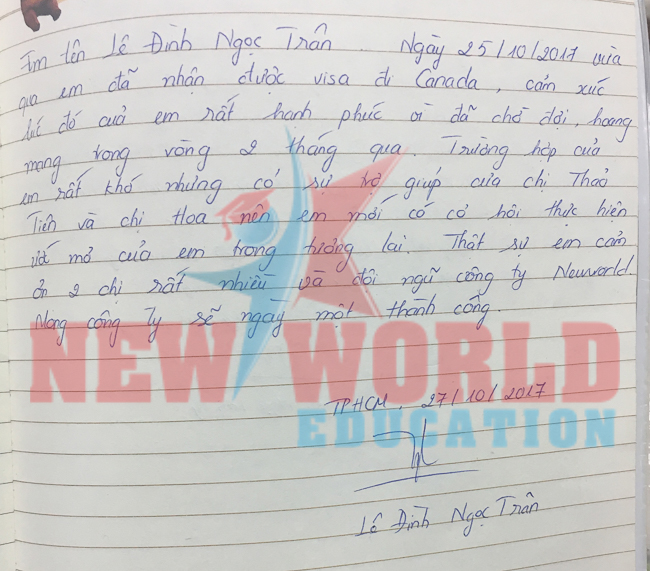 Em tên Lê Đình Ngọc Trân. Ngày 25/10/2017 vừa
qua em đã nhận được visa đi Canada, cảm xúc
lúc đó của em rất hạnh phúc vì đã chờ đợi, hoang
mang trong vòng 2 tháng qua. Trường hợp của
em rất khó nhưng có sự trợ giúp của chị Thảo
Tiên và chị Hoa nên em mới có cơ hội thực hiện
ước mơ của em trong tương lai. Thật sự em cảm
ơn 2 chị rất nhiều và đội ngũ công ty Newworld.
Mong công ty sẽ ngày một thành công.
NEW WORLD
EDUCATION
TPHCM, 27/10/2017
Lê Đình Ngọc Trân